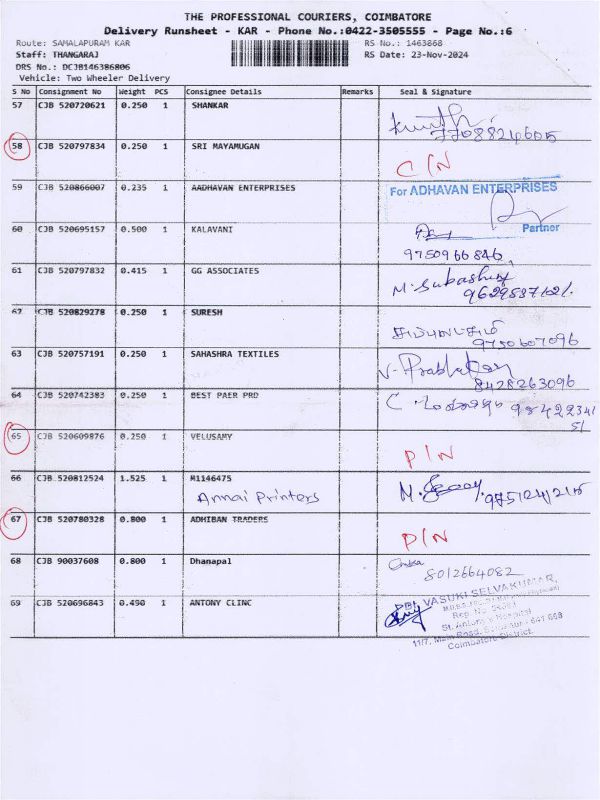 THE PROFESSIONAL COURIERS, COIMBATORE
Delivery Runsheet - KAR - Phone No.:0422-3505555 - Page No.:6
Route: SAMALAPURAM KAR RS No.: 1463868
Staff: THANGARAJ RS Date: 23-Nov-2024
DRS No.: DCJB146386806
Vehicle: Two Wheeler Delivery
S No Consignment No Weight PCS Consignee Details Remarks Seal & Signature
57 CJB 520720621 0.250 1 SHANKAR
7708824605
58 CJB 520797834 0.250 1 SRI MAYAMUGAN
C/N
59 CJB 520866007 0.235 1 AADHAVAN ENTERPRISES For ADHAVAN ENTERPRISES
Partner
60 CJB 520695157 0.500 1 KALAVANI
9750966846
61 CJB 520797832 0.415 1 GG ASSOCIATES
M. Subashini
62 CJB 520829278 0.250 1 SURESH
9750607096
63 CJB 520757191 0.250 1 SAHASHRA TEXTILES
V. Prabhakaran
8428263096
64 CJB 520742383 0.250 1 BEST PAER PRD
65 CJB 520609876 0.250 1 VELUSAMY
P/N
66 CJB 520812524 1.525 1 M1146475
Annai Printers
67 CJB 520780328 0.800 1 ADHIBAN TRADERS
P/N
68 CJB 90037608 0.800 1 Dhanapal
8012664082
69 CJB 520696843 0.490 1 ANTONY CLINC
VASUKI SELVAKUMAR,
St. Antony's Hospital
Coimbatore District.